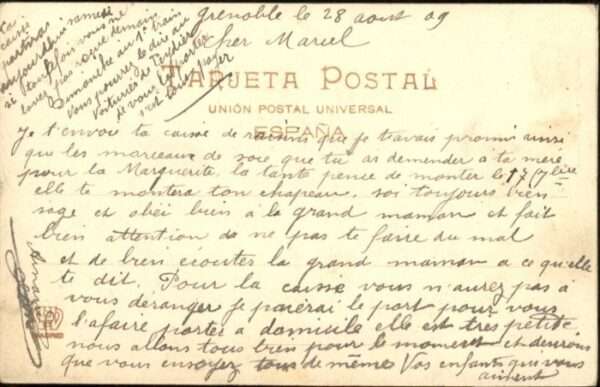 Grenoble le 28 aout 09
Cher Marcel
La
caisse
partira
aujourdhui samedi
si toutefois vous ne
avez pas reçue demain
Dimanche au 1er train
vous pourrez le dire au
voiturier de
de vous l'apporter
c'est tout payer
TARJETA POSTAL
UNIÓN POSTAL UNIVERSAL
ESPAÑA
Je t'envoie ta caisse de raisins que je t'avais promis ainsi
que les morceaux de soie que tu as demender a ta mère
pour la Marguerite, la tante pense de monter le 17 7bre
elle te montera ton chapeau. soi toujours bien
sage et obéi bien à la grand maman et fait
bien attention de ne pas te faire du mal
et de bien écoutes la grand maman a ce qu'elle
te dit. Pour la caisse vous n'aurez pas à
vous déranger je paierai le port pour vous
l'afaire porter a domicile elle est tres petite
nous allons tous bien pour le moment et desirons
que vous en soyez tous de même Vos enfants qui vous
aiment